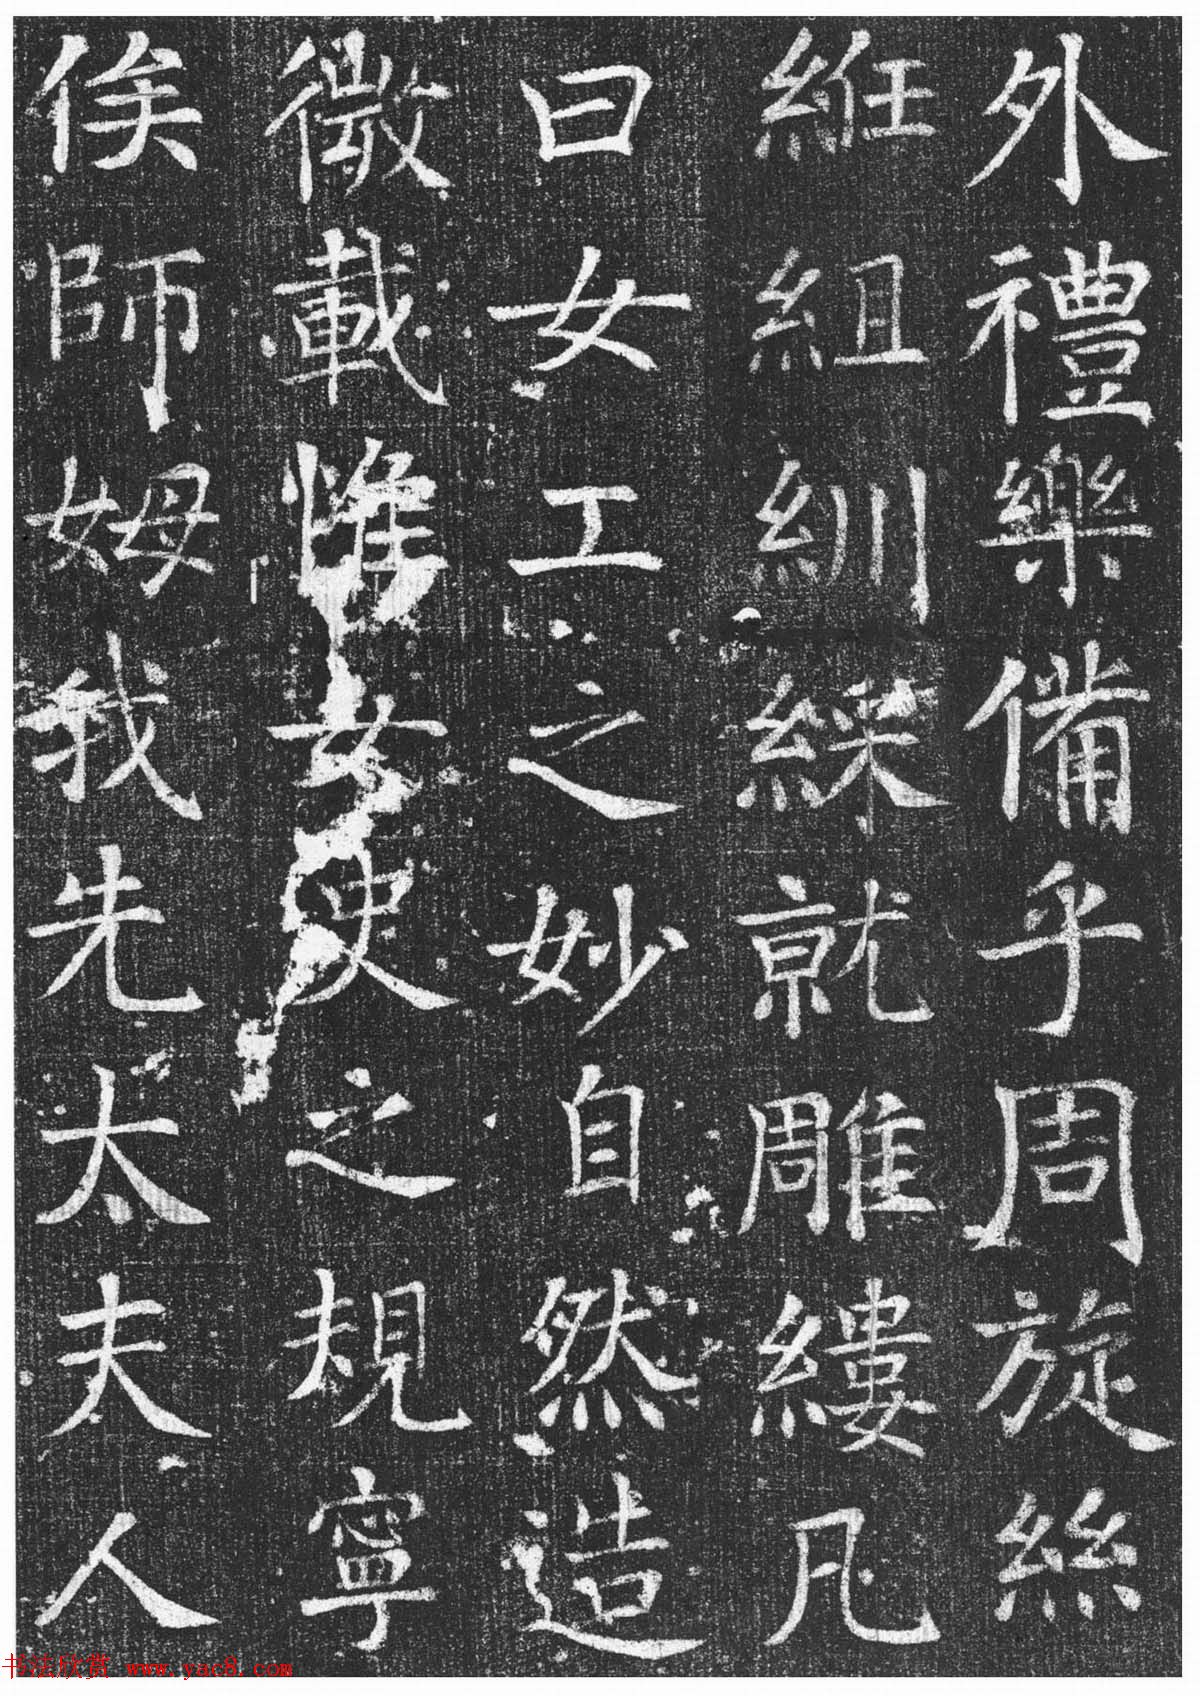 外禮樂備乎周旋絲
絍組紃綵就雕縷凡
曰女工之妙自然造
微載惟女史之規寧
俟師姆我先太夫人
书法欣赏 www.yac8.com